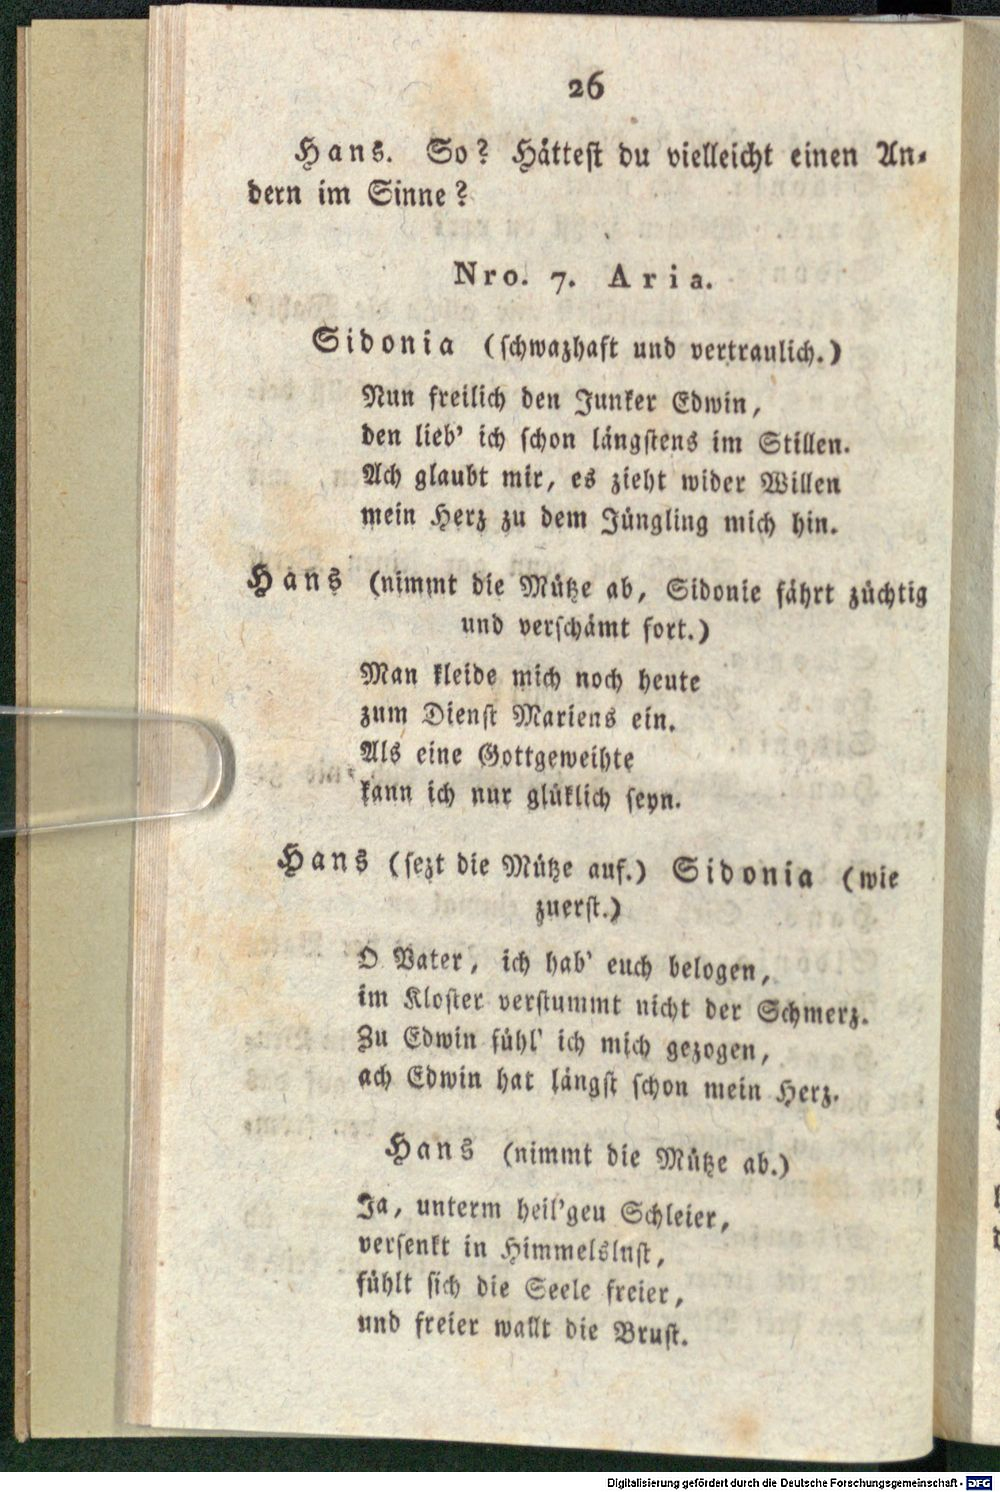 26
Hans. So? Hättest du vielleicht einen An-
dern im Sinne?
Nro. 7. Aria.
Sidonia (schwazhaft und vertraulich.)
Nun freilich den Junker Edwin,
den lieb' ich schon längstens im Stillen.
Ach glaubt mir, es zieht wider Willen
mein Herz zu dem Jüngling mich hin.
Hans (nimmt die Mütze ab, Sidonie fährt züchtig
und verschämt fort.)
Man kleide mich noch heute
zum Dienst Mariens ein.
Als eine Gottgeweihte
kann ich nur glüklich seyn.
Hans (sezt die Mütze auf.) Sidonia (wie
zuerst.)
O Vater, ich hab' euch belogen,
im Kloster verstummt nicht der Schmerz.
Zu Edwin fühl' ich mich gezogen,
ach Edwin hat längst schon mein Herz.
Hans (nimmt die Mütze ab.)
Ja, unterm heil'geu Schleier,
versenkt in Himmelslust,
fühlt sich die Seele freier,
und freier wallt die Brust.
Digitalisierung gefördert durch die Deutsche Forschungsgemeinschaft - DFG